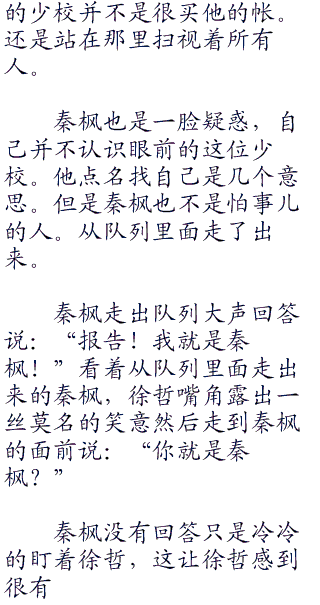 的少校并不是很买他的帐。
还是站在那里扫视着所有
人。
秦枫也是一脸疑惑，自
己并不认识眼前的这位少
校。他点名找自己是几个意
思。但是秦枫也不是怕事儿
的人。从队列里面走了出
来。
秦枫走出队列大声回答
说：“报告！我就是秦
枫！”看着从队列里面走出
来的秦枫，徐哲嘴角露出一
丝莫名的笑意然后走到秦枫
的面前说：“你就是秦
枫？”
秦枫没有回答只是冷冷
的盯着徐哲，这让徐哲感到
很有